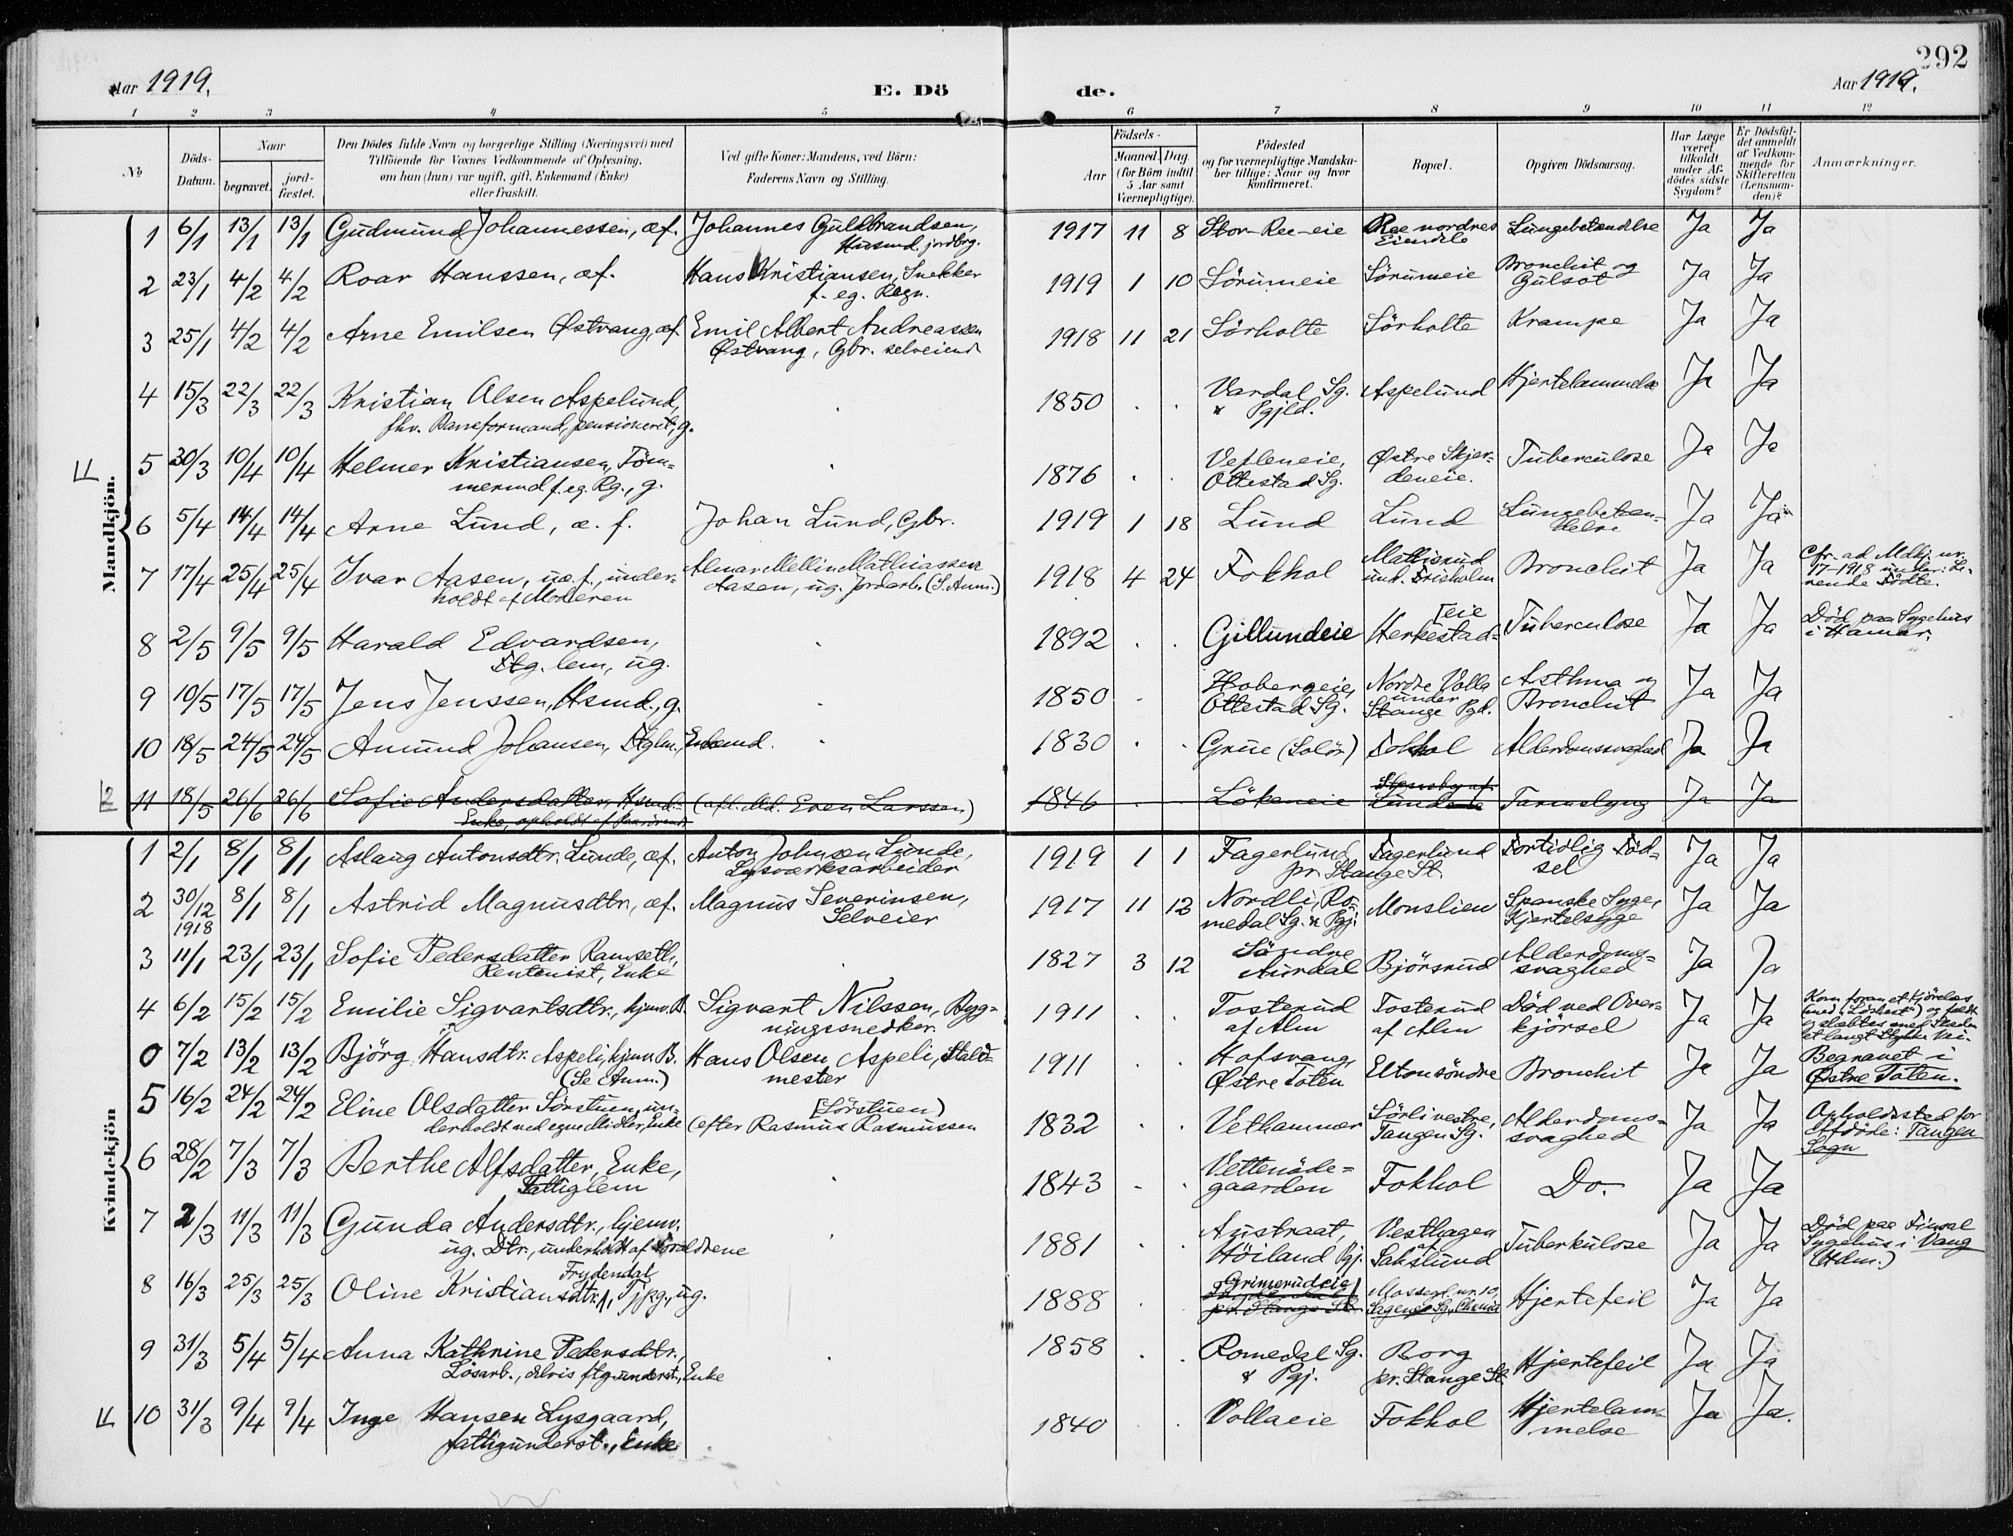 292
Aar 1919.
E. Dö
de.
Aar 1919.
1 2 3 4 5 6 7 8 9 10 11 12
№
Döds-Datum.
Naar
begravet.
jord-fæstet.
Den Dödes fulde Navn og borgerlige Stilling (Næringsvei) med
Tilföiende for Voxnes Vedkommende af Oplysning,
om han (hun) var ugift, gift, Enkemand (Enke)
eller fraskilt.
Ved gifte Koner: Mandens, ved Börn:
Faderens Navn og Stilling.
Födsels-
Aar
Maaned. Dag.
(for Börn indtil
5 Aar samt
Værnepligtige).
Födested
og for værnepligtige Mandska-
ber tillige: Naar og hvor
konfirmeret.
Bopæl.
Opgiven Dödsaarsag.
Har Læge
været
tilkaldt
under Af-
dödes sidste
Sygdom?
Er Dödsfal-
det anmeldt
af Vedkom-
mende for
Skifteretten
(Lensman-
den)?
Anmærkninger.
Mandkjön.
1 6/1 13/1 13/1 Gudmund Johannessen, æf. Johannes Guldbrandsen, 1917 11 8 Stor-Ree-eie Ree nordres Lungebetændelse Ja Ja
Husmd. jordbrg. Eiendele
2 23/1 4/2 4/2 Roar Hanssen, æf. Hans Kristiansen, Snekker 1919 1 10 Sörumeie Sörumeie Bronchit og Ja Ja
f. eg. Regn. Gulsot
3 25/1 4/2 4/2 Arne Emilsen Østvang, æf. Emil Albert Andreassen 1918 11 21 Sörholte Sörholte Krampe Ja Ja
Østvang, Gbr. selveiend
4 15/3 22/3 22/3 Kristian Olsen Aspelund, 1850 Vardal Sg. Aspelund Hjertelammelse Ja Ja
fhv. Baneformand, pensioneret, g. & Pgjld.
5 30/3 10/4 10/4 Helmer Kristiansen, Töm- 1876 Vepleneie, Østre Skjer- Tuberculose Ja Ja
mermd f. eg. Rg., g. Ottestad Sg. deneie.
6 5/4 14/4 14/4 Arne Lund, æ. f. Johan Lund, Gbr. 1919 1 18 Lund Lund Lungebetæn- Ja Ja
delse
7 17/4 25/4 25/4 Ivar Aasen, uæ.f., under- Almar Mellin Mathiassen 1918 4 24 Fokhol Mathisrud Bronchit Ja Ja Cfr. ad Mdkj. nr.
holdt af Moderen Aasen, ug. Jordarb. (S. Anm.) und. Frisholm 17-1918 under: Le-
vende Födte.
8 2/5 9/5 9/5 Harald Edvardsen, 1892 Gillundeie Herkestad- eie Tuberculose Ja Ja Död paa Sygehus
Ftg. lem, ug. i Hamar.
9 10/5 17/5 17/5 Jens Jenssen, Hsmd., g. 1850 Hobergeie, Nordre Volla Asthma og Ja Ja
Ottestad Sg. under Stange Pgd. Bronchit
10 18/5 24/5 24/5 Amund Johansen, Ftglm., Enkemd. 1830 Grue (Solör) Fokhol Alderdomssvaghed Ja Ja
11 18/5 26/6 26/6 Sofie Andersdatter, Hsmd.- (afd. Md. Even Larssen) 1846 Lökeneie Lundeeie Tarmslyng Ja Ja
Enke, opholdt af Paarörende
Kvindekjön
1 2/1 8/1 8/1 Aslaug Antonsdtr. Lunde, æf. Anton Johnsen Lunde, 1919 1 1 Fagerlund Fagerlund Fortidlig Föd- Ja Ja
Lysværksarbeider pr. Stange St. sel
2 30/12 1918 8/1 8/1 Astrid Magnusdtr., æf. Magnus Severinsen, 1917 11 12 Nordli, Ro- Monslien Spanske Syge, Ja Ja
Selveier medal Sg. & Pgj. Kjertelsyge
3 11/1 23/1 23/1 Sofie Pedersdatter Ramseth, 1827 3 12 Söndre Björsrud Alderdoms- Ja Ja
Rentenist, Enke Aurdal svaghed
4 6/2 15/2 15/2 Emilie Sigvartsdtr., hjemv. B. Sigvart Nilssen, Byg- 1911 Tosterud Tosterud Död ved Over- Ja Ja Kom foran et Kjörelæs
ningssnedker. af Alm af Alm kjörsel (med "Löshest") og faldt
og slæbtes med Slæden
et langt Stykke Vei.
0 7/2 13/2 13/2 Björg Hansdtr. Aspeli, hjemv. B. Hans Olsen Aspeli, Stald- 1911 Hofsvang, Elton söndre Bronchit Ja Ja Begravet i
(Se Anm.) mester Østre Toten Østre Toten.
5 16/2 24/2 24/2 Eline Olsdatter Sörstuen, un- (Sörstuen) 1832 Vethammer Sörli vestre, Alderdoms- Ja Ja Opholdssted for
derholdt ved egne Midler, Enke (efter Rasmus Rasmussen Tangen Sg. svaghed Afdöde: Tangen
Sogn
6 28/2 7/3 7/3 Berthe Alfsdatter, Enke, 1843 Vettenöde- Fokhol Do. Ja Ja
Fattiglem gaarden
7 2/3 11/3 11/3 Gunda Andersdtr., hjemv. 1881 Austraat, Vesthagen Tuberkulose Ja Ja Död paa Finsal
ug. Dtr., underholdt af Forældrene Höiland Pgj. af Saxlund Sygehus i Vang
(Hdm.)
8 16/3 25/3 25/3 Oline Kristiansdtr. Frydendal, Tjpg., ug. 1888 Grimerudeie Mosseg. nr. 10, Hjertefeil Ja Ja
pr. Stange St. Sagene Sg., Chrnia
9 31/3 5/4 5/4 Anna Kathrine Pedersdtr., 1858 Romedal Sg. Borg Hjertefeil Ja Ja
Lösarb., delvis ftg. underst., Enke & Pgj. pr. Stange St.
10 31/3 9/4 9/4 Inge Hansen Lysgaard, 1840 Vollaeie Fokhol Hjertelam- Ja Ja.
fattigunderst., Enke melse